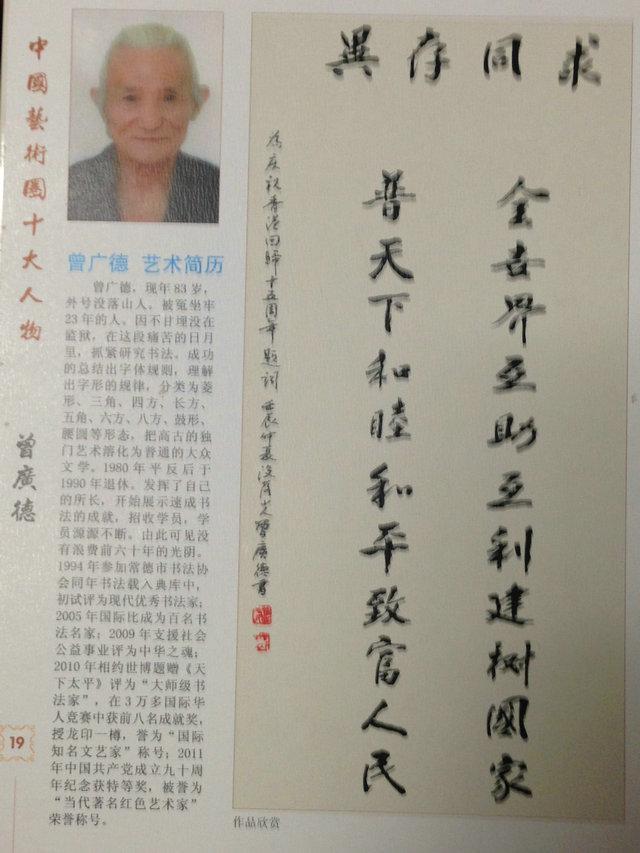 中國藝術圈十大人物
曾廣德
19
曾广德 艺术简历
曾广德，现年83岁，
外号没落山人。被冤坐牢
23年的人。因不甘埋没在
监狱，在这段痛苦的日月
里，抓紧研究书法。成功
的总结出字体规则，理解
出字形的规律，分类为菱
形、三角、四方、长方、
五角、六方、八方、鼓形、
腰圆等形态，把高古的独
门艺术溶化为普通的大众
文学。1980年平反后于
1990年退休。发挥了自己
的所长，开始展示速成书
法的成就，招收学员，学
员源源不断。由此可见没
有浪费前六十年的光阴。
1994年参加常德市书法协
会同年书法载入典库中，
初试评为现代优秀书法家；
2005年国际比成为百名书
法名家；2009年支援社会
公益事业评为中华之魂；
2010年相约世博题赠《天
下太平》评为“大师级书
法家”，在3万多国际华
人竞赛中获前八名成就奖，
授龙印一樽，誉为“国际
知名文艺家”称号；2011
年中国共产党成立九十周
年纪念获特等奖，被誉为
“当代著名红色艺术家”
荣誉称号。
求同存異
全世界互助互利建树國家
普天下和睦和平致富人民
為庆祝香港回歸十五周年题詞 壬辰仲夏没落山人曾廣德書
作品欣赏